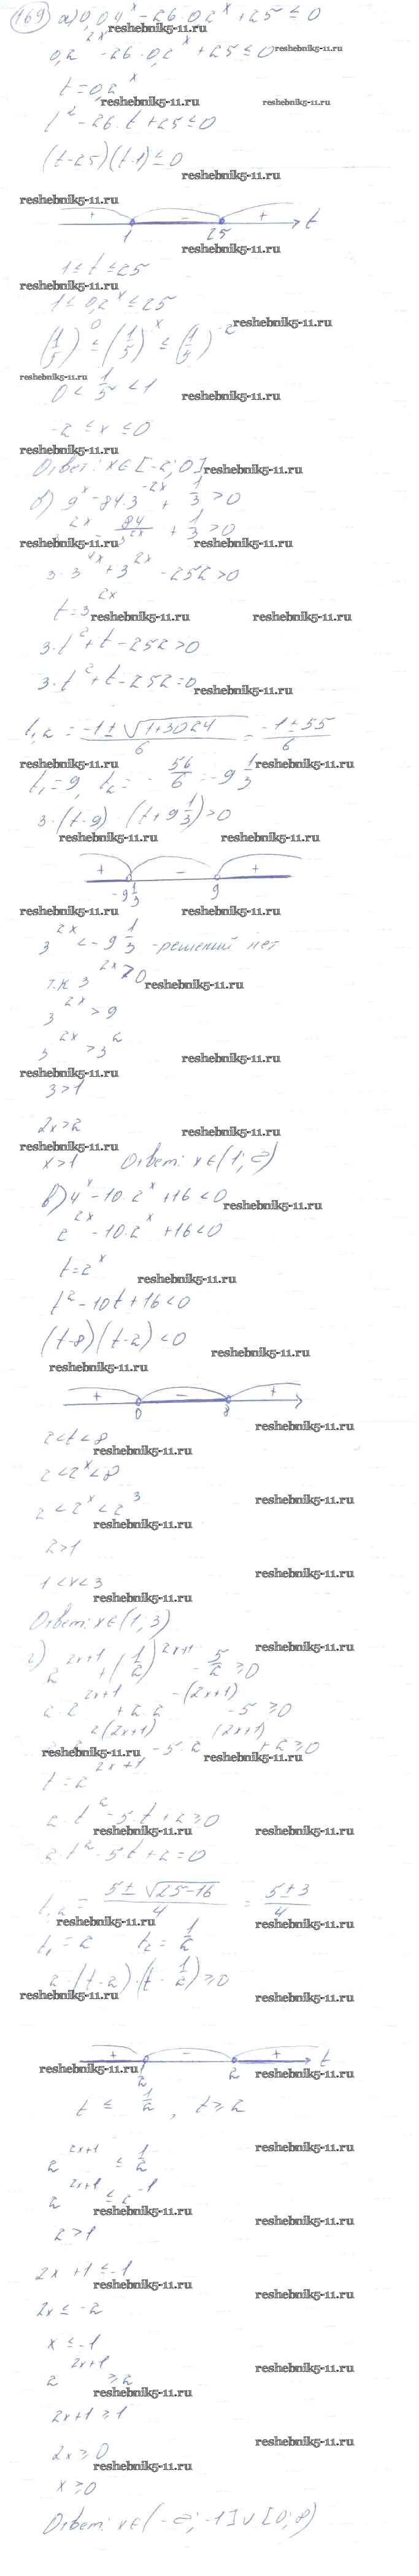 169 а) 0,04^x - 26·0,2^x + 25 ≤ 0
reshebnik5-11.ru
0,2^2x - 26·0,2^x + 25 ≤ 0 reshebnik5-11.ru
t = 0,2^x
reshebnik5-11.ru reshebnik5-11.ru
t² - 26·t + 25 ≤ 0
(t-25)(t-1) ≤ 0
reshebnik5-11.ru
reshebnik5-11.ru
+ - + t
1 25
reshebnik5-11.ru
1 ≤ t ≤ 25
reshebnik5-11.ru
1 ≤ 0,2^x ≤ 25
(1/5)^0 ≤ (1/5)^x ≤ (1/5)^-2 reshebnik5-11.ru
reshebnik5-11.ru
0 < 1/5 < 1
reshebnik5-11.ru
-2 ≤ x ≤ 0
reshebnik5-11.ru
Ответ: x∈[-2; 0] reshebnik5-11.ru
б) 9^x - 84·3^-2x + 1/3 > 0
3^2x - 84/3^2x + 1/3 > 0
reshebnik5-11.ru reshebnik5-11.ru
3·3^4x + 3^2x - 252 > 0
t = 3^2x
reshebnik5-11.ru reshebnik5-11.ru
3·t² + t - 252 > 0
3·t² + t - 252 = 0
reshebnik5-11.ru
t1,2 = (-1 ± √(1+3024))/6 = (-1 ± 55)/6
reshebnik5-11.ru reshebnik5-11.ru
t1 = 9, t2 = -56/6 = -9 1/3
3·(t-9)·(t+9 1/3) > 0
reshebnik5-11.ru reshebnik5-11.ru
+ - +
-9 1/3 9
reshebnik5-11.ru reshebnik5-11.ru
3^2x < -9 1/3 - решений нет
т.к 3^2x > 0
reshebnik5-11.ru
3^2x > 9
3^2x > 3^2
reshebnik5-11.ru
reshebnik5-11.ru
3 > 1
2x > 2
reshebnik5-11.ru
reshebnik5-11.ru
x > 1 Ответ: x∈(1; ∞)
в) 4^x - 10·2^x + 16 < 0
reshebnik5-11.ru
2^2x - 10·2^x + 16 < 0
t = 2^x
reshebnik5-11.ru
t² - 10t + 16 < 0
(t-8)(t-2) < 0
reshebnik5-11.ru
reshebnik5-11.ru
+ - +
0 8
reshebnik5-11.ru
2 < t < 8
reshebnik5-11.ru
2 < 2^x < 8
reshebnik5-11.ru
2 < 2^x < 2^3
reshebnik5-11.ru
2 > 1
reshebnik5-11.ru
1 < x < 3
reshebnik5-11.ru
Ответ: x∈(1; 3)
reshebnik5-11.ru
г) 2^2x+1 + (1/2)^2x+1 - 5/2 ≥ 0
2·2^2x+1 + 2·2^-(2x+1) - 5 ≥ 0
2·2^2(2x+1) - 5·2^(2x+1) + 2 ≥ 0
reshebnik5-11.ru reshebnik5-11.ru
t = 2^2x+1
2·t² - 5·t + 2 ≥ 0
reshebnik5-11.ru reshebnik5-11.ru
2·t² - 5·t + 2 = 0
t1,2 = (5 ± √(25-16))/4 = (5 ± 3)/4
reshebnik5-11.ru reshebnik5-11.ru
t1 = 2 t2 = 1/2
2·(t-2)·(t-1/2) ≥ 0
reshebnik5-11.ru reshebnik5-11.ru
+ - + t
reshebnik5-11.ru reshebnik5-11.ru
1/2 2
t ≤ 1/2, t ≥ 2
reshebnik5-11.ru
2^2x+1 ≤ 1/2
2^2x+1 ≤ 2^-1
reshebnik5-11.ru
reshebnik5-11.ru
2 > 1
2x + 1 ≤ -1
reshebnik5-11.ru
reshebnik5-11.ru
2x ≤ -2
x ≤ -1
reshebnik5-11.ru
2^2x+1 ≥ 2
reshebnik5-11.ru
2x+1 ≥ 1
reshebnik5-11.ru
2x ≥ 0
reshebnik5-11.ru
x ≥ 0
Ответ: x∈(-∞; -1]∪[0; ∞)